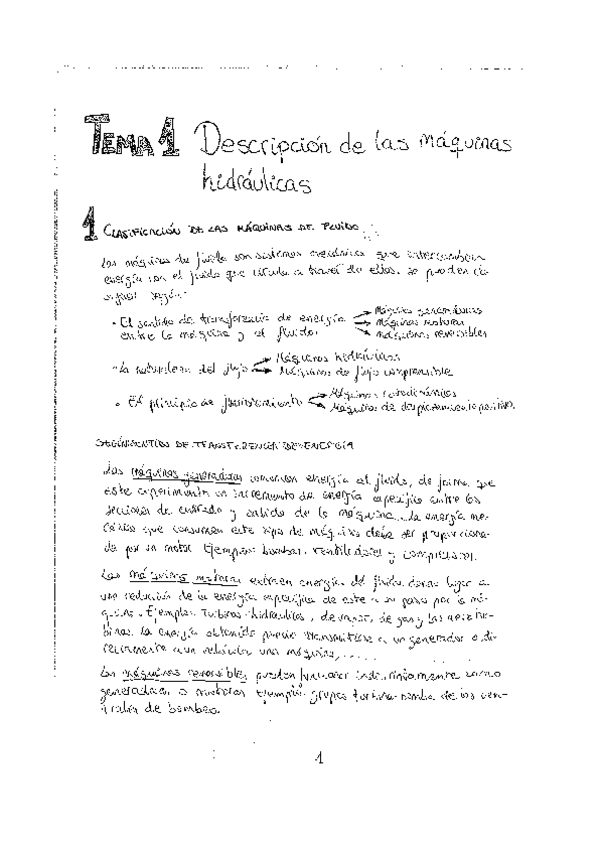 TEMA 1 Descripción de las máquinas
hidráulicas
1 CLASIFICACIÓN DE LAS MÁQUINAS DE FLUIDO
Las máquinas de fluido son sistemas mecánicos que intercambian
energía con el fluido que circula a través de ellos. Se pueden cla-
sificar según:
• El sentido de transferencia de energía → Máquinas generadoras
entre la máquina y el fluido. → Máquinas motoras
→ Máquinas reversibles
• La naturaleza del flujo → Máquinas hidráulicas
→ Máquinas de flujo compresible
• El principio de funcionamiento → Máquinas rotodinámicas
→ Máquinas de desplazamiento positivo.
SEGÚN SENTIDO DE TRANSFERENCIA DE ENERGÍA
Las máquinas generadoras comunican energía al fluido, de forma que
este experimenta un incremento de energía específica entre las
secciones de entrada y salida de la máquina. La energía me-
cánica que consumen este tipo de máquinas debe ser proporciona-
da por un motor. Ejemplos: bombas, ventiladores y compresores.
Las máquinas motoras extraen energía del fluido, dando lugar a
una reducción de la energía específica de este a su paso por la má-
quina. Ejemplos: Turbinas hidráulicas, de vapor, de gas y las aerotur-
binas. La energía obtenida puede transmitirse a un generador o di-
rectamente a un vehículo, una máquina, ...
Las máquinas reversibles pueden funcionar indistintamente como
generadoras o motoras. Ejemplo: grupos turbina-bomba de las cen-
trales de bombeo.
1